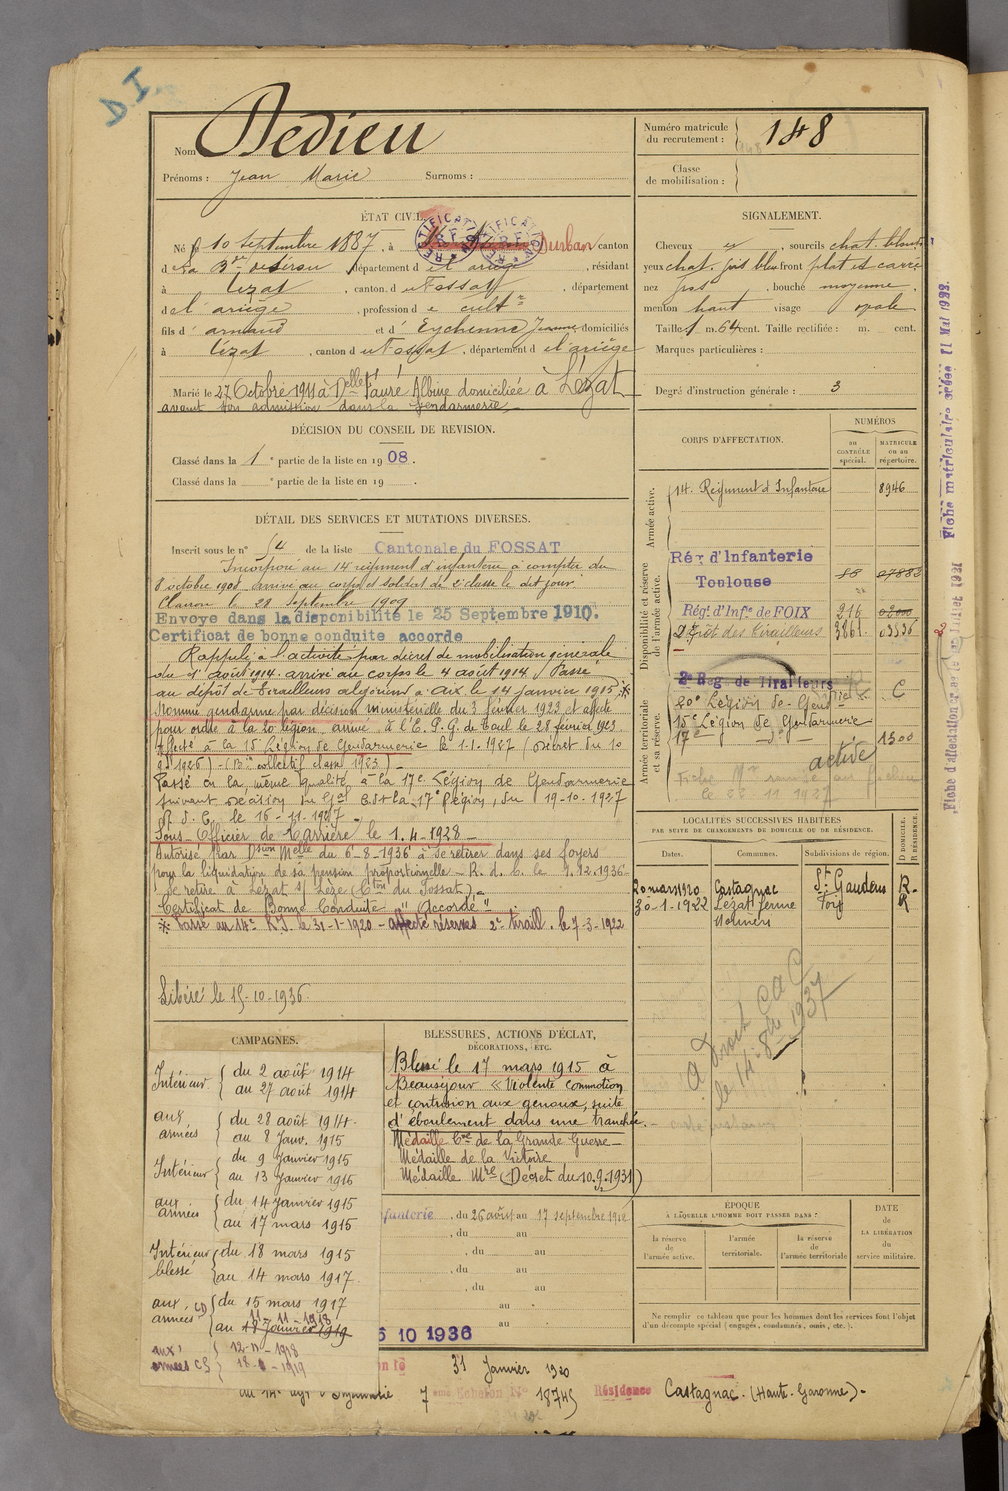 D.I.
Nom Dedieu
Prénoms : Jean Marie Surnoms :
Numéro matricule du recrutement : 148
Classe de mobilisation :
ÉTAT CIVIL.
RECTIFICATION R.F. RECTIFICATION R.F.
Né le 10 Septembre 1887, à Durban canton
département de l'ariège, résidant
à Lézat, canton du Fossat, département
de l'ariège, profession de cultr
fils d'armand et d'Eychenne Jeanne domiciliés
à Lézat, canton du Fossat, département de l'ariège
Marié le 27 Octobre 1911 à Delle Fauré Albine domiciliée à Lézat
avant son admission dans la Gendarmerie
SIGNALEMENT.
Cheveux , sourcils chat. blonds
yeux chat. gris bleu front plat et carré
nez gros, bouche moyenne,
menton haut visage ovale
Taille 1 m. 64 cent. Taille rectifiée : m. cent.
Marques particulières :
Degré d'instruction générale : 3
DÉCISION DU CONSEIL DE REVISION.
Classé dans la 1e partie de la liste en 1908.
Classé dans la e partie de la liste en 19 .
DÉTAIL DES SERVICES ET MUTATIONS DIVERSES.
Inscrit sous le n° 54 de la liste Cantonale du FOSSAT
Incorporé au 14 régiment d'infanterie à compter du
8 octobre 1908 arrivé au corps et soldat de 2e classe le dit jour
Clairon le 28 Septembre 1909
Envoyé dans la disponibilité le 25 Septembre 1910.
Certificat de bonne conduite accordé
Rappelé à l'activité par décret de mobilisation générale
du 1er août 1914. arrivé au corps le 4 août 1914. Passé
au dépôt de tirailleurs algériens à Aix le 14 Janvier 1915 ※
Nommé gendarme par décision ministérielle du 3 février 1923 et affecté
pour ordre à la 20 légion, arrivé à l'E.P.G. de Toul le 28 février 1923.
Affecté à la 15 Légion de Gendarmerie le 1.1.1927 (Décret du 10
1926) - (Bin collectif classe 1923) -
Passé en la même qualité à la 17e Légion de Gendarmerie
suivant décision du Gal Cdt la 17e Région, du 19-10-1927
R.d.C. le 16-11-1927 -
Sous-Officier de Carrière le 1.4-1928 -
Autorisé par Dsion Melle du 6-8-1936 à se retirer dans ses foyers
pour la liquidation de sa pension proportionnelle - R.d.C. le 9.12.1936-
Se retire à Lézat s/ Lèze (Cton du Fossat) -
Certificat de Bonne Conduite "Accordé"
※ Passé au 14e R.I. le 31-1-1920 - affecté réserves 2e tiraill. le 7-3-1922
Libéré le 15-10-1936.
CORPS D'AFFECTATION.
NUMÉROS
au CONTRÔLE spécial.
MATRICULE ou au répertoire.
Armée active.
14. Régiment d'Infanterie 8946
Disponibilité et réserve de l'armée active.
Rég d'Infanterie
Toulouse 58 07883
Régt d'Infie de FOIX 216 02000
Dépôt des Tirailleurs 3861 03536
Armée territoriale et sa réserve.
2e Reg. de Tirailleurs C
20e Légion de Gendrie
15e Légion de Gendarmerie
17e d° 1300
active
LOCALITÉS SUCCESSIVES HABITÉES
PAR SUITE DE CHANGEMENTS DE DOMICILE OU DE RÉSIDENCE.
Dates. Communes. Subdivisions de région. D DOMICILE. R RÉSIDENCE.
20 mars 1920 Castagnac St Gaudens R.
30-1.1922 Lézat ferme Foix R
a Droit CaC
le 14-8bre 1937
Fiche matriculaire créée 11 Mai 1922.
CAMPAGNES.
Intérieur { du 2 août 1914
au 27 août 1914
aux armées { du 28 août 1914.
au 8 Janv. 1915
Intérieur { du 9 Janvier 1915
au 13 Janvier 1915
aux armées { du 14 Janvier 1915
au 17 mars 1915
Intérieur blessé { du 18 mars 1915
au 14 mars 1917.
aux armées CD { du 15 mars 1917
11 - 11 - 1918
au 18 Janvier 1919
aux armées CS { 12-11-1918
1919
BLESSURES, ACTIONS D'ÉCLAT,
DÉCORATIONS, ETC.
Blessé le 17 mars 1915 à
Beauséjour « Violente commotion
et contusion aux genoux, suite
d'éboulement dans une tranchée. -
Médaille Cve de la Grande Guerre -
Médaille de la Victoire
Médaille Mre (Décret du 10.9.1931)
nfanterie, du 26 août au 17 septembre 1912
, du au
, du au
, du au
, du au
au
au
10 1936
ÉPOQUE
À LAQUELLE L'HOMME DOIT PASSER DANS :
la réserve de l'armée active.
l'armée territoriale.
la réserve de l'armée territoriale
DATE de LA LIBÉRATION du service militaire.
Ne remplir ce tableau que pour les hommes dont les services font l'objet
d'un décompte spécial (engagés, condamnés, omis, etc.).
31 Janvier 1920
7 eme Echelon N° 18745 Résidence Castagnac. (Haute-Garonne).-